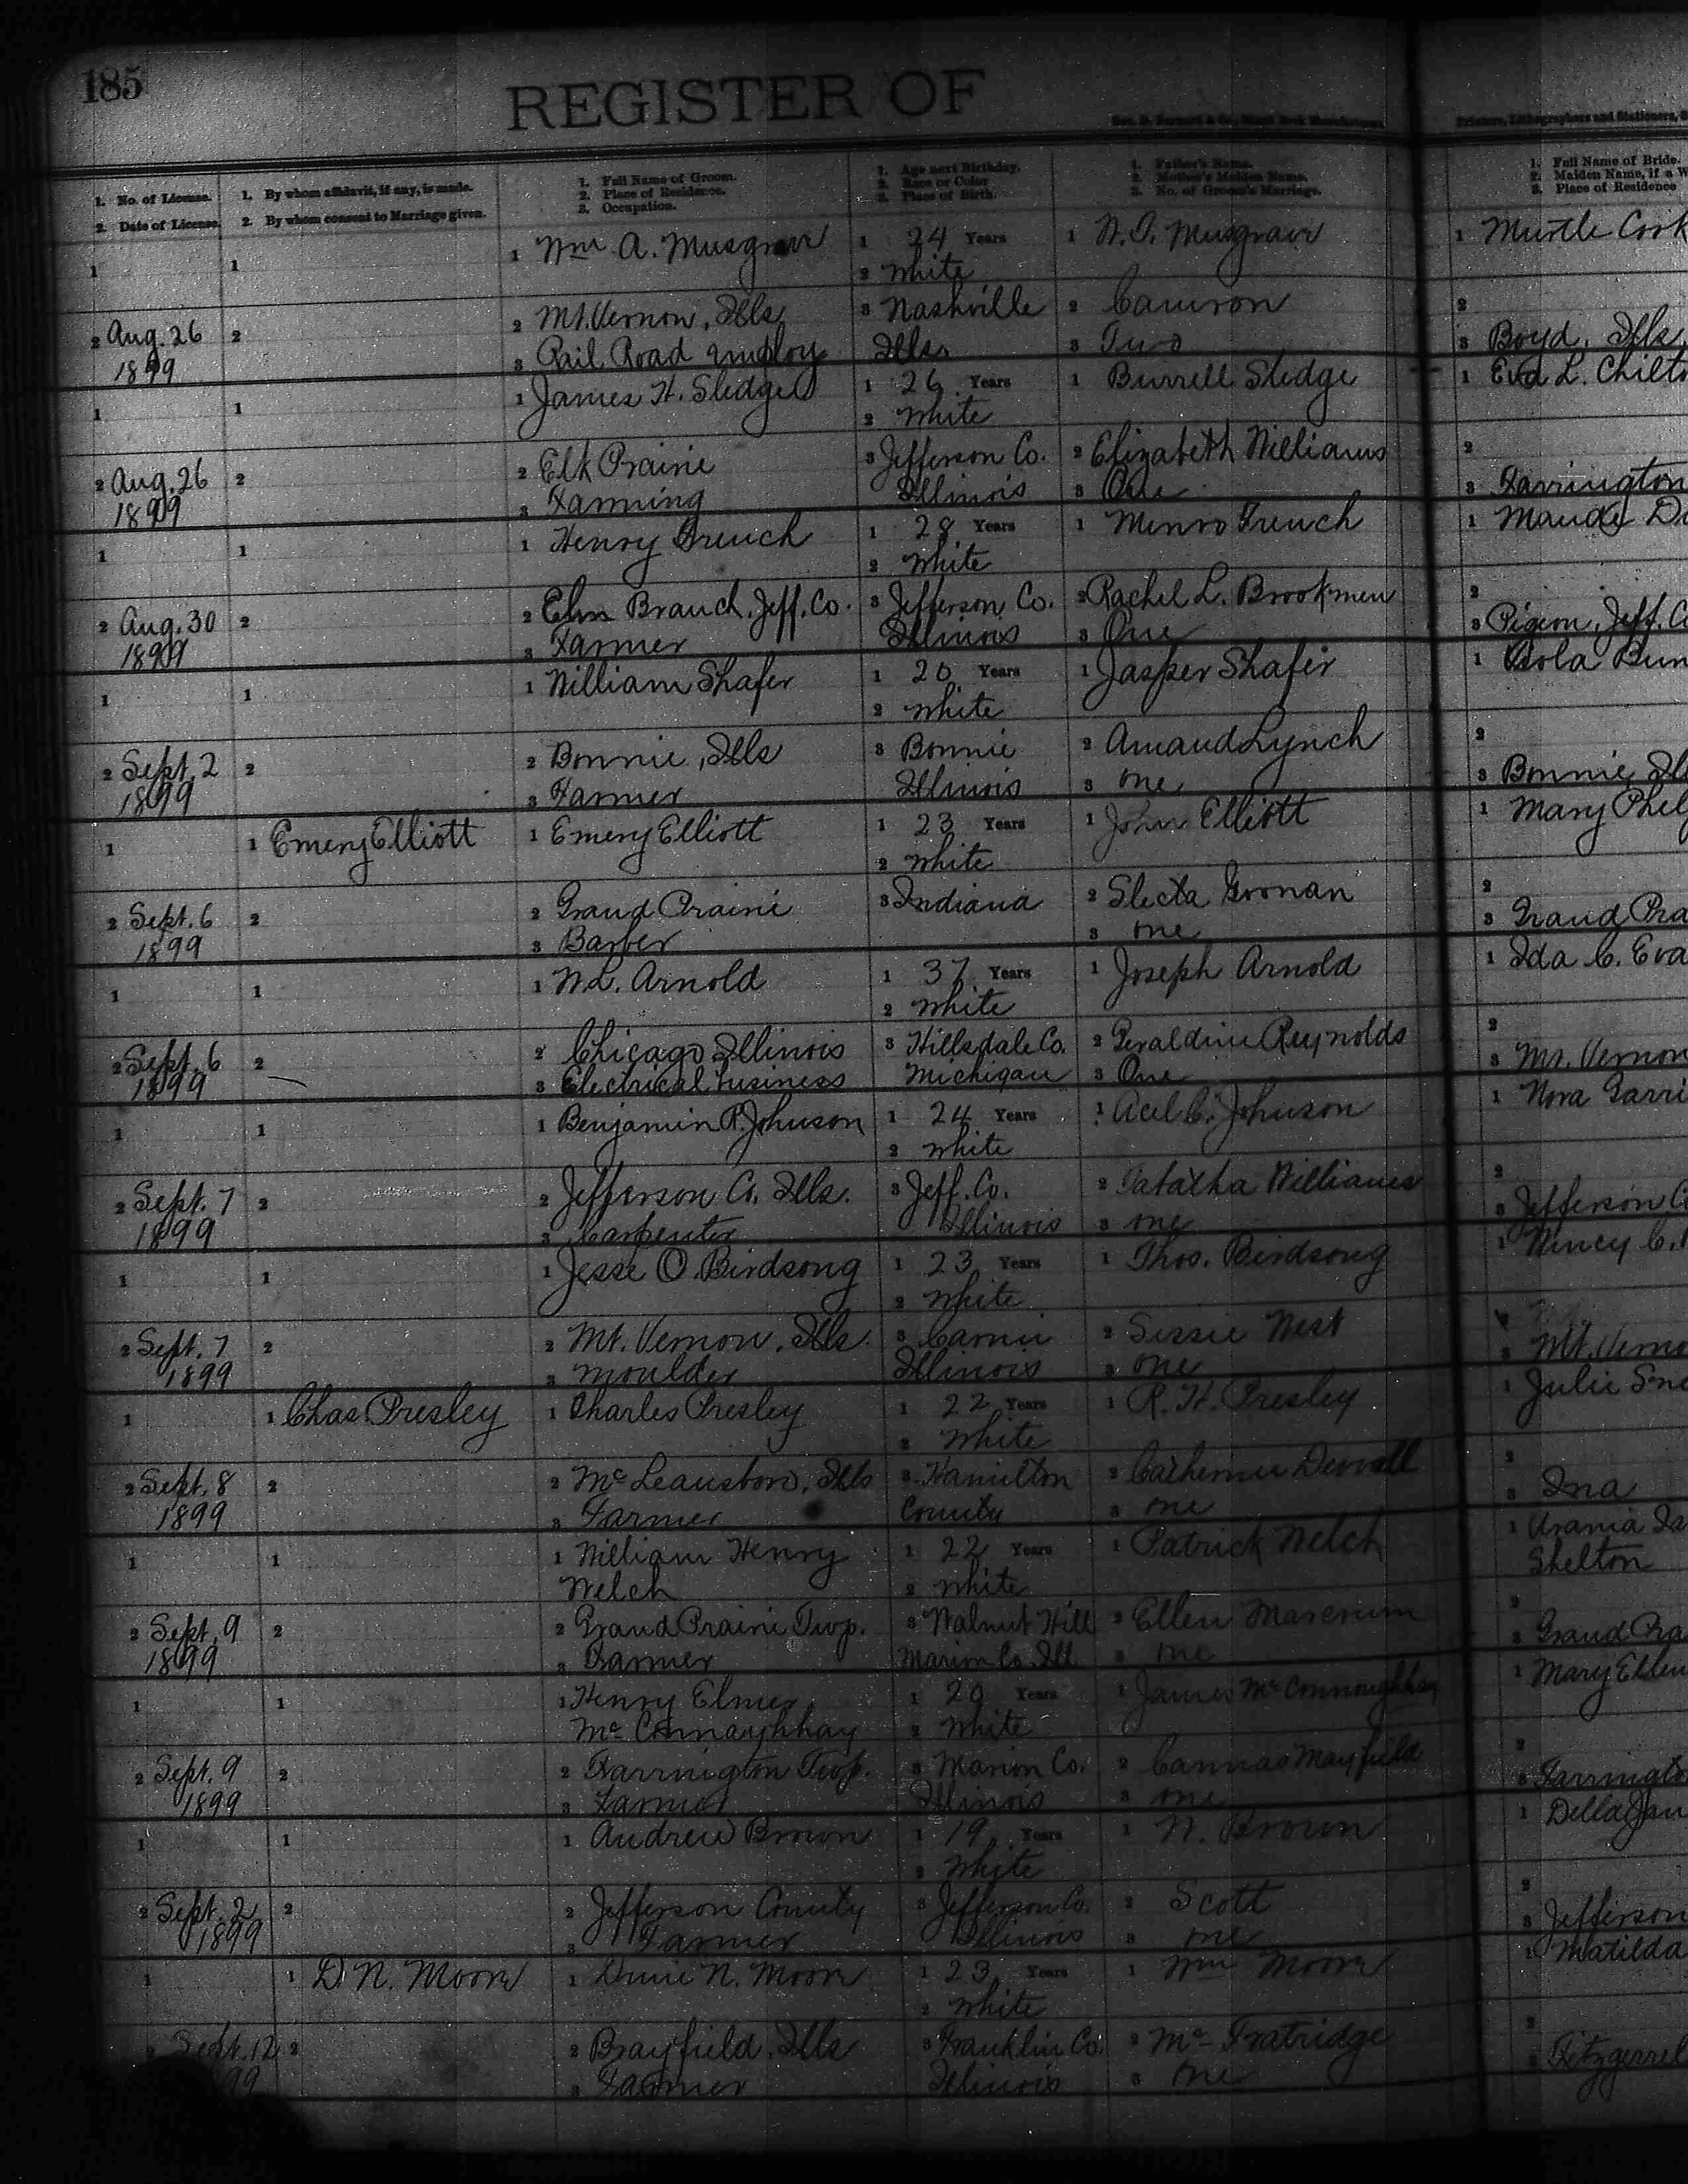 185
REGISTER OF
1. No. of License.
2. Date of License.
1. By whom affidavit, if any, is made.
2. By whom consent to Marriage given.
1. Full Name of Groom.
2. Place of Residence.
3. Occupation.
1. Age next Birthday.
2. Race or Color
3. Place of Birth.
1. Father's Name.
2. Mother's Maiden Name.
3. No. of Groom's Marriage.
1. Full Name of Bride.
2. Maiden Name, if a W
3. Place of Residence
1 1 1 Wm A. Musgrave 1 24 Years 1 Musgrave 1 Murtle Cook
2 White
2 Aug. 26 2 2 Mt. Vernon, Ills 3 Nashville 2 Cameron 2
1899 3 Rail Road employ Ills. 3 Two 3 Boyd, Ills.
1 1 1 James H. Sledge 1 26 Years 1 Burrell Sledge 1 Eva L. Chilt
2 White
2 Aug. 26 2 2 Elk Prairie 3 Jefferson Co. 2 Elizabeth Williams 2
1899 3 Farming Illinois 3 One 3 Farrington
1 1 1 Henry French 1 28 Years 1 Minro French 1 Maude D
2 White
2 Aug. 30 2 2 Elm Branch, Jeff. Co. 3 Jefferson Co. 2 Rachel L. Brookmen 2
1899 3 Farmer Illinois 3 One 3 Pigeon, Jeff. C
1 1 1 William Shafer 1 20 Years 1 Jasper Shafer 1 Bun
2 White
2 Sept. 2 2 2 Bonnie, Ills 3 Bonnie 2 Lynch 2
1899 3 Farmer Illinois 3 one 3 Bonnie Ill
1 1 Emery Elliott 1 Emery Elliott 1 23 Years 1 John Elliott 1 Mary Phel
2 White
2 Sept. 6 2 2 Grand Prairie 3 Indiana 2 Slecta 2
1899 3 Barber 3 one 3 Grand Pra
1 1 1 W.L. Arnold 1 37 Years 1 Joseph Arnold 1 Ida C. Eva
2 White
2 Sept. 6 2 2 Chicago Illinois 3 Hillsdale Co. 2 Geraldine Reynolds 2
1899 3 Electrical business Michigan 3 One 3 Mt. Vernon
1 1 1 Benjamin R. Johnson 1 24 Years 1 C. Johnson 1 Nora Garri
2 White
2 Sept. 7 2 2 Jefferson Co. Ills. 3 Jeff. Co. 2 Tabatha Williams 2
1899 3 Carpenter Illinois 3 one 3 Jefferson C
1 1 1 Jesse O. Birdsong 1 23 Years 1 Thos. Birdsong 1 Nincy C.
2 White
2 Sept. 7 2 2 Mt. Vernon, Ills. 3 Carmi 2 Sissie West 2
1899 3 Moulder Illinois 3 one 3 Mt. Verno
1 1 Chas. Presley 1 Charles Presley 1 22 Years 1 R. H. Presley 1 Julie Sne
2 White
2 Sept. 8 2 2 McLeansboro, Ills 3 Hamilton 2 Catherine 2
1899 3 Farmer County 3 one 3 Ina
1 1 1 William Henry 1 22 Years 1 Patrick Welch 1 Urania Is
Welch 2 White Shelton
2 Sept. 9 2 2 Grand Prairie Twp. 3 Walnut Hill 2 Ellen 2
1899 3 Farmer Marion Co. Ill 3 one 3 Grand Pra
1 1 1 Henry Elmer 1 20 Years 1 James McConnoughhay 1 Mary Ellen
McConnaughhay 2 White
2 Sept. 9 2 2 Farrington Twp. 3 Marion Co. 2 Mayfield 2
1899 3 Farmer Illinois 3 one 3 Farringto
1 1 1 Andrew Brown 1 19 Years 1 Brown 1 Della Jan
2 White
2 Sept. 2 2 2 Jefferson County 3 Jefferson Co. 2 Scott 2
1899 3 Farmer Illinois 3 one 3 Jefferson
1 1 D. N. Moore 1 N. Moore 1 23 Years 1 Wm Moore 1 Matilda
2 White
2 Sept. 12 2 2 Brayfield, Ills 3 Franklin Co. 2 2
99 3 Farmer Illinois 3 one 3 Fitzgerrel